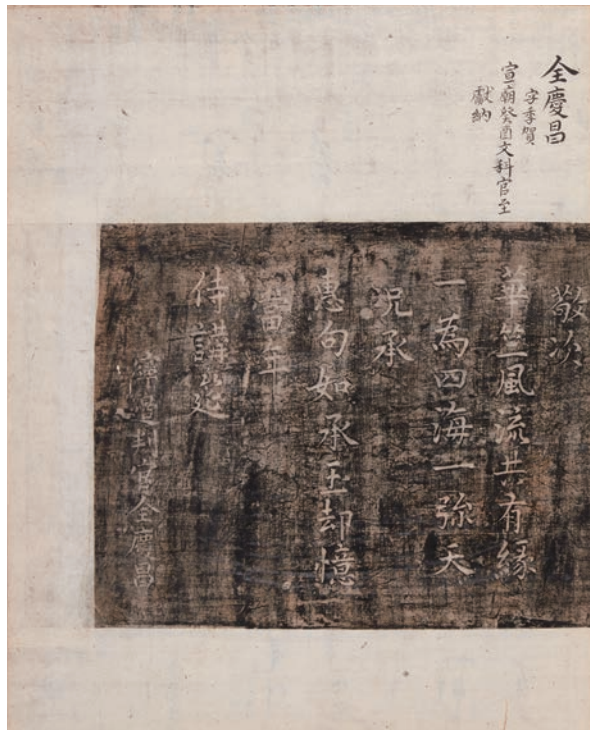 全慶昌
字季賀
宣廟癸酉文科官至
獻納
敬次
華竺風流共有緣
一為四海一弥天
况承
惠句如承玉却憶
當年
侍講筵
判官全慶昌